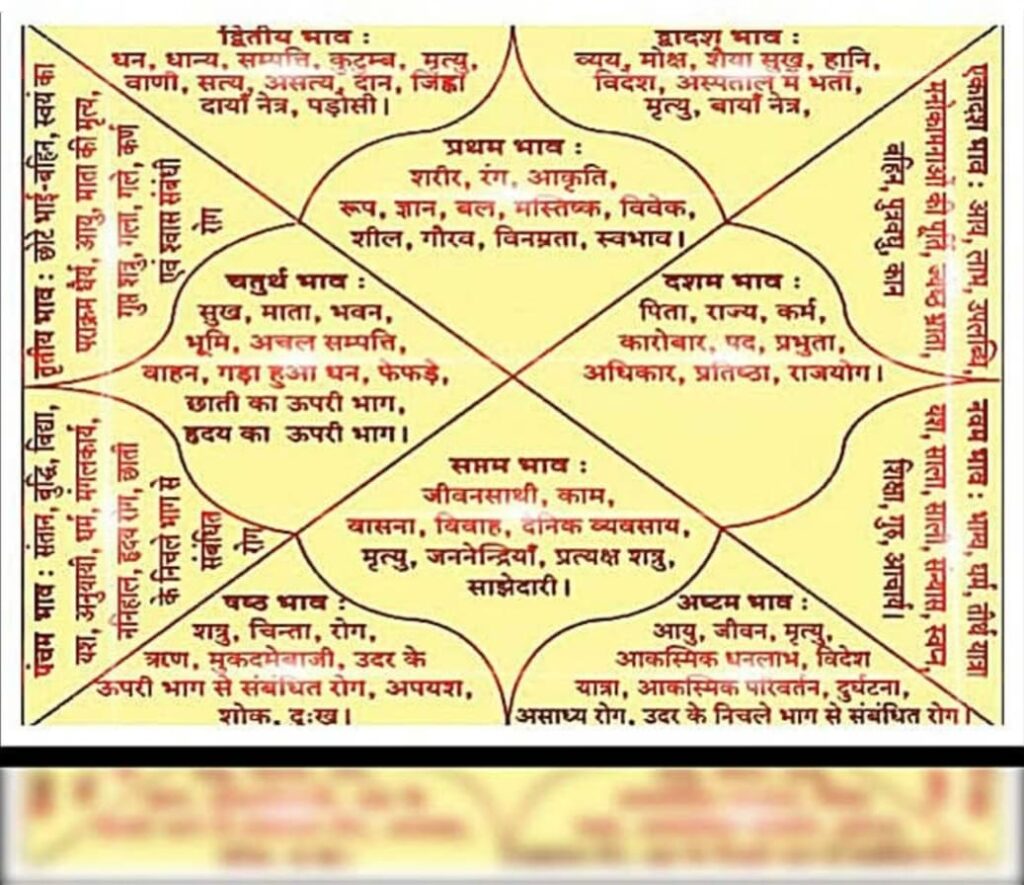 द्वितीय भाव :
धन, धान्य, सम्पत्ति, कुटुम्ब, मृत्यु,
वाणी, सत्य, असत्य, दान, जिह्वा
दायाँ नेत्र, पड़ोसी।
द्वादश भाव :
व्यय, मोक्ष, शैया सुख, हानि,
विदेश, अस्पताल में भर्ती,
मृत्यु, बायाँ नेत्र,
प्रथम भाव :
शरीर, रंग, आकृति,
रूप, ज्ञान, बल, मस्तिष्क, विवेक,
शील, गौरव, विनम्रता, स्वभाव।
तृतीय भाव : छोटे भाई-बहिन, स्वयं का
पराक्रम धैर्य, आयु, माता की मृत्यु,
गुप्त शत्रु, गला, गले, कर्ण
एवं श्वास संबंधी
रोग
एकादश भाव : आय, लाभ, उपलब्धि,
मनोकामनाओं की पूर्ति, ज्येष्ठ भ्राता,
बहिन, पुत्रवधु, कान
चतुर्थ भाव :
सुख, माता, भवन,
भूमि, अचल सम्पत्ति,
वाहन, गड़ा हुआ धन, फेफड़े,
छाती का ऊपरी भाग,
हृदय का ऊपरी भाग।
दशम भाव :
पिता, राज्य, कर्म,
कारोबार, पद, प्रभुता,
अधिकार, प्रतिष्ठा, राजयोग।
पंचम भाव : संतान, बुद्धि, विद्या,
यश, अनुयायी, धर्म, मंगलकार्य,
ननिहाल, हृदय रोग, छाती
के निचले भाग से
संबंधित
रोग
सप्तम भाव :
जीवनसाथी, काम,
वासना, विवाह, दैनिक व्यवसाय,
मृत्यु, जननेन्द्रियाँ, प्रत्यक्ष शत्रु,
साझेदारी।
नवम भाव : भाग्य, धर्म, तीर्थ यात्रा
यश, साला, साली, संन्यास, स्वप्न,
शिक्षा, गुरु, आचार्य।
षष्ठ भाव :
शत्रु, चिन्ता, रोग,
ऋण, मुकदमेबाजी, उदर के
ऊपरी भाग से संबंधित रोग, अपयश,
शोक, दुःख।
अष्टम भाव :
आयु, जीवन, मृत्यु,
आकस्मिक धनलाभ, विदेश
यात्रा, आकस्मिक परिवर्तन, दुर्घटना,
असाध्य रोग, उदर के निचले भाग से संबंधित रोग।